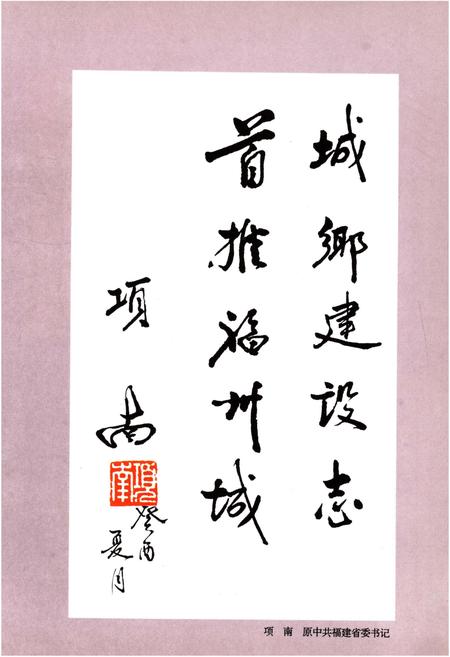 城鄉建设志
首推福州城
項南
項南
癸酉
夏月
项 南 原中共福建省委书记